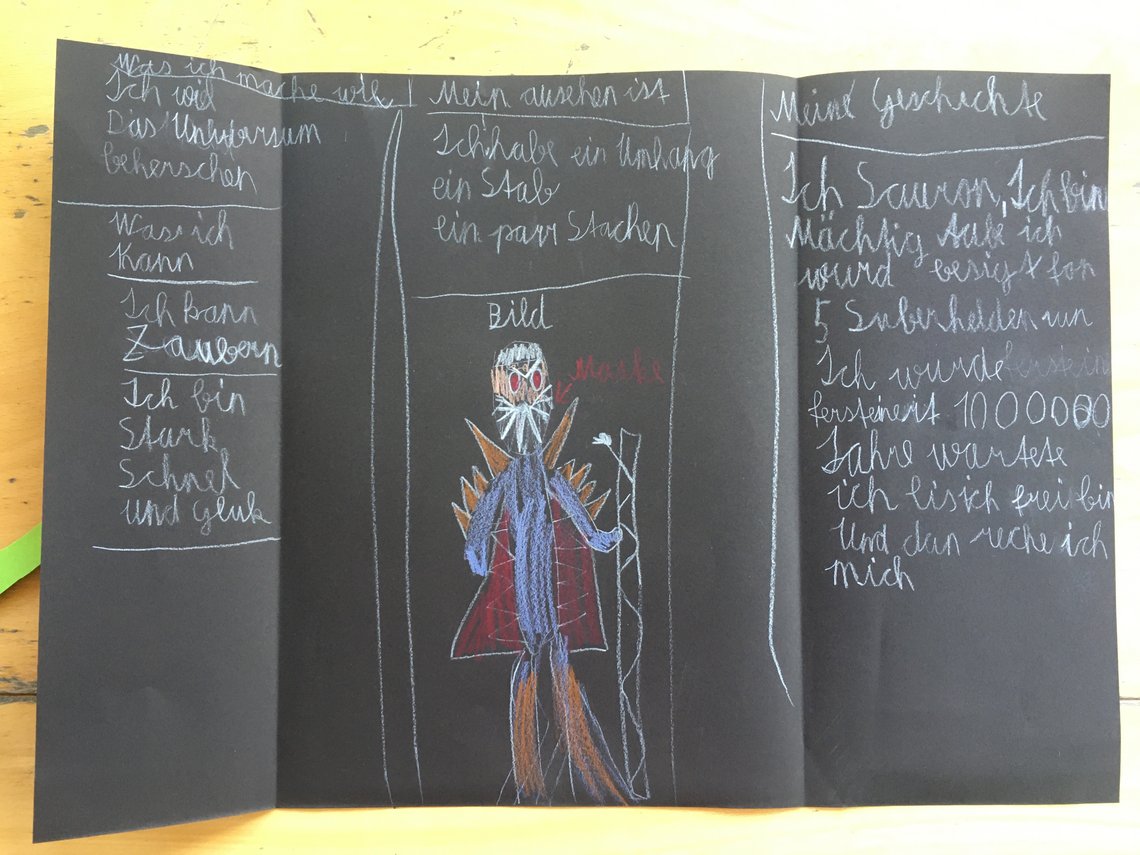 Was ich mache wie
Ich wil
Das Universum
beherschen
Was ich
Kann
Ich kann
Zaubern
Ich bin
Stark
Schnel
und Gluk
Mein ausehen ist
Ich habe ein Umhang
ein Stab
ein parr Stachen
Bild
Maske
Meine Geschichte
Ich Sauron, Ich bin
Mächtig Aube ich
wurd besigt fon
5 Suberhelden un
Ich wurde ferstein
fersteinert 1000000
Jahre wartete
ich bis ich frei bin
Und dan reche ich
mich